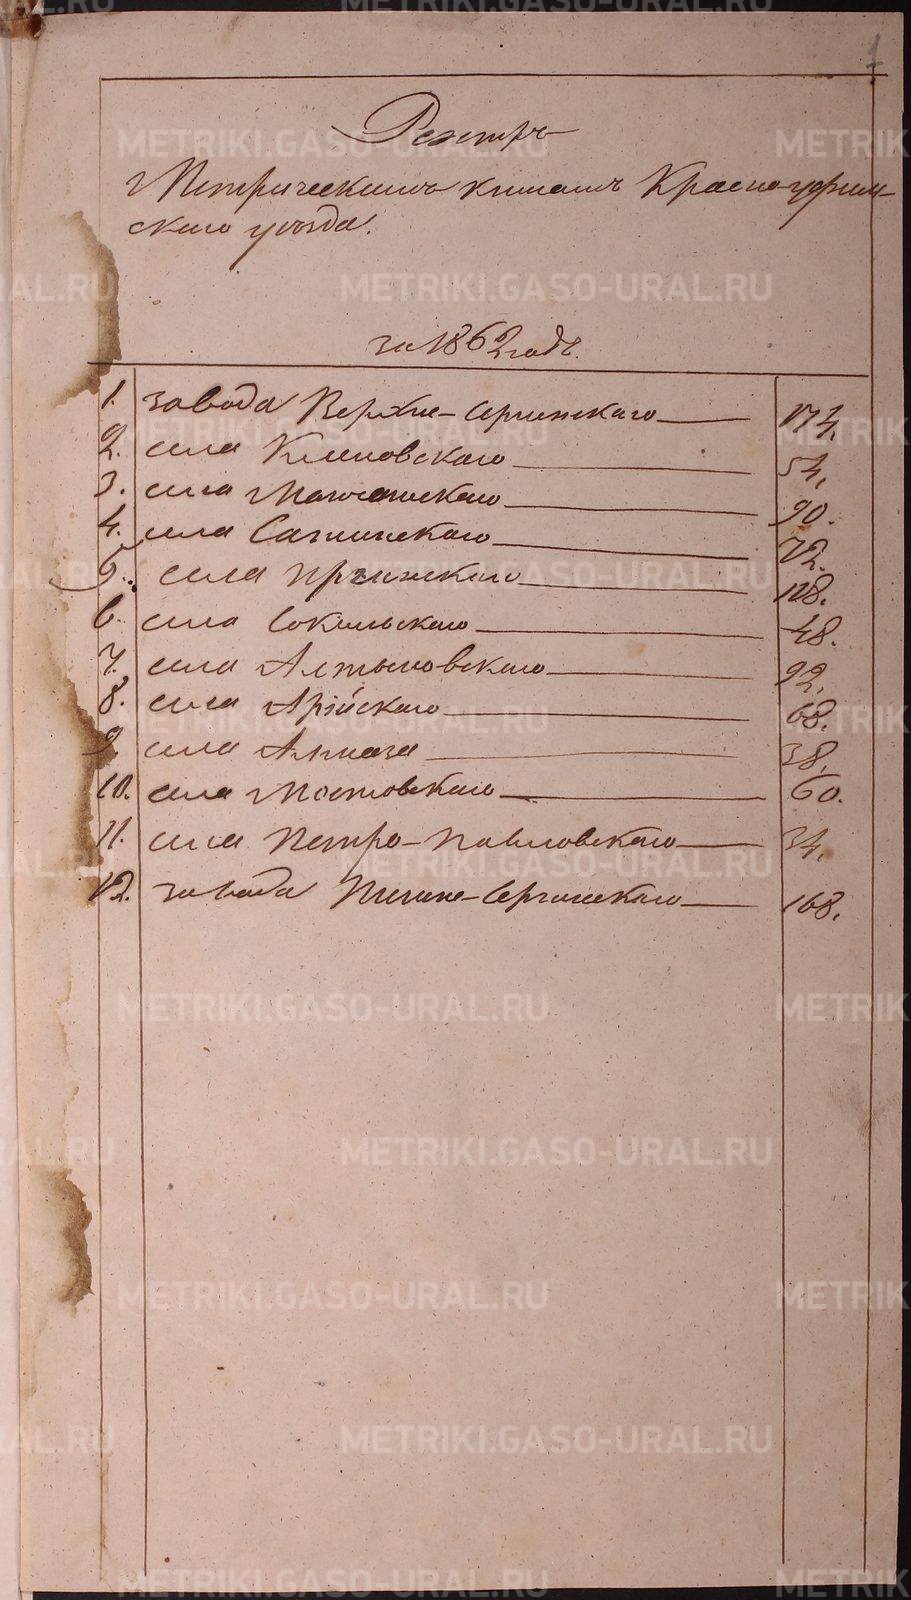 1
Реэстръ
Метрическимъ книгамъ Красно-уфим-
скаго уѣзда.
за 1862 годъ.
1. завода Верхне-Сергинскаго 174.
2. села Кленовскаго 54.
3. села 90.
4. села 72.
5. села Иргинскаго 128.
6. села Сокольскаго 48.
7. села Алтыновскаго 92.
8. села Арійскаго 68.
9. села Ачита 38.
10. села Мостовскаго 60.
11. села Петро-Павловскаго 34.
12. завода Нижне-Сергинскаго 168.
METRIKI.GASO-URAL.RU